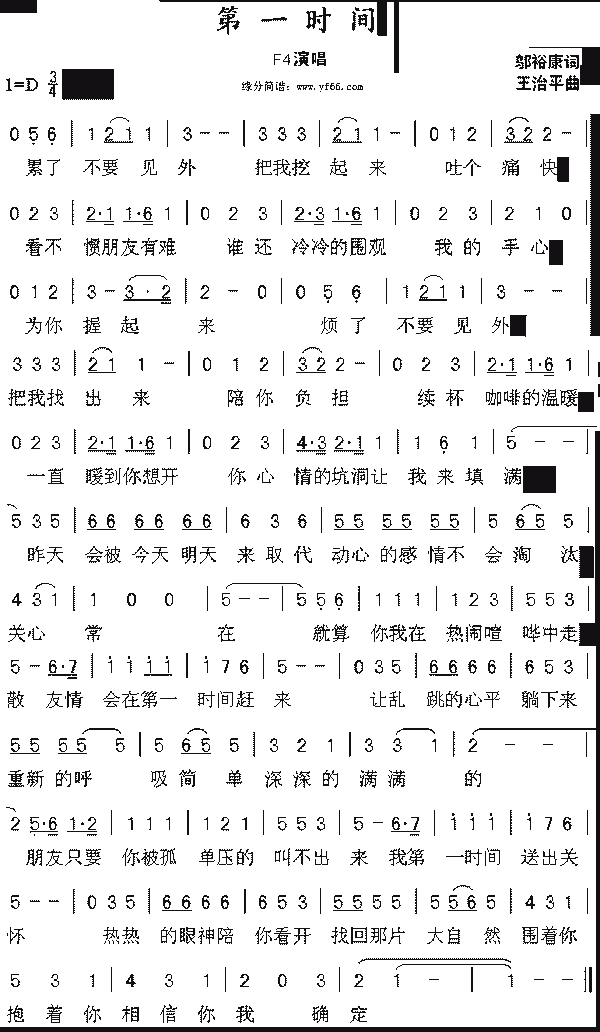 第一时间
F4演唱
邬裕康词
1=D 3/4
缘分简谱：www.yf66.com
王治平曲
0 5 6 | 1 2 1 1 | 3 - - | 3 3 3 | 2 1 1 - | 0 1 2 | 3 2 2 - |
累了 不要见外 把我挖起来 吐个痛快
0 2 3 | 2·1 1·6 1 | 0 2 3 | 2·3 1·6 1 | 0 2 3 | 2 1 0
看不惯朋友有难 谁还冷冷的围观 我的手心
0 1 2 | 3 - 3 · 2 | 2 - 0 | 0 5 6 | 1 2 1 1 | 3 - - |
为你握起来 烦了 不要见外
3 3 3 | 2 1 1 - | 0 1 2 | 3 2 2 - | 0 2 3 | 2·1 1·6 1 |
把我找出来 陪你负担 续杯咖啡的温暖
0 2 3 | 2·1 1·6 1 | 0 2 3 | 4·3 2·1 1 | 1 6 1 | 5 - -
一直暖到你想开 你心情的坑洞让我来填满
5 3 5 | 6 6 6 6 6 6 | 6 3 6 | 5 5 5 5 5 5 | 5 6 5 5 |
昨天会被今天明天来取代 动心的感情不会淘汰
4 3 1 | 1 0 0 | 5 - - | 5 5 6 | 1 1 1 | 1 2 3 | 5 5 3 |
关心常在 就算你我在热闹喧哗中走
5 - 6·7 | 1 1 1 1 1 | 1 7 6 | 5 - - | 0 3 5 | 6 6 6 6 6 | 6 5 3 |
散 友情会在第一时间赶来 让乱跳的心平躺下来
5 5 5 5 5 | 5 6 5 5 | 3 2 1 | 3 3 1 | 2 - - |
重新的呼吸简单深深的满满的
2 5·6 1·2 | 1 1 1 | 1 2 1 | 5 5 3 | 5 - 6·7 | 1 1 1 | 1 7 6
朋友只要你被孤单压的叫不出来 我第一时间送出关
5 - - | 0 3 5 | 6 6 6 6 6 | 6 5 3 | 5 5 5 5 5 | 5 5 6 5 | 4 3 1 |
怀 热热的眼神陪你看开 找回那片大自然围着你
5 3 1 | 4 3 1 | 2 0 3 | 2 1 - | 1 - - ‖
抱着你相信你我确定